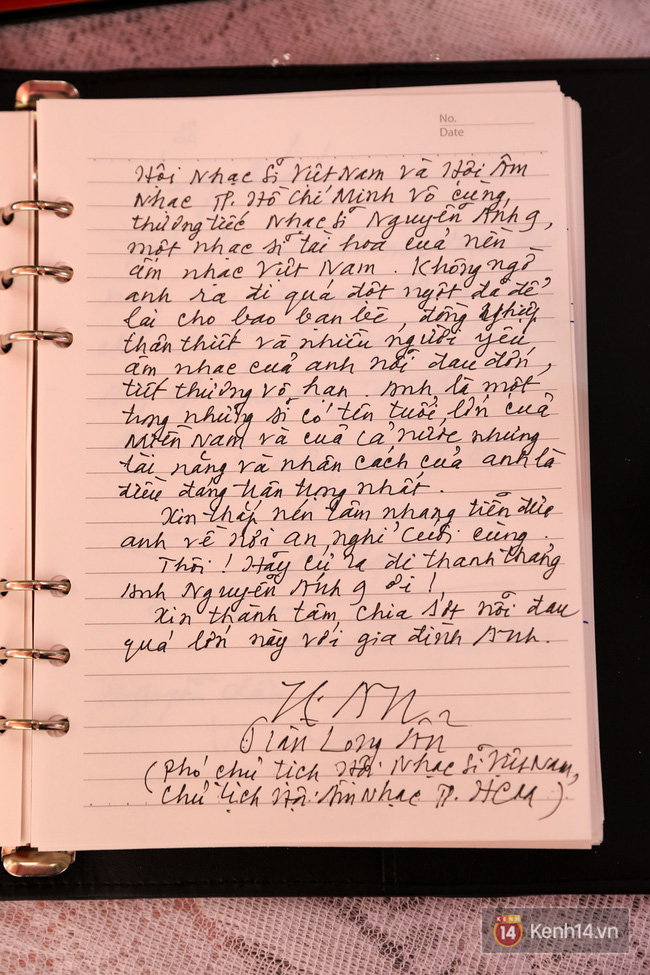 No.
Date
Hội Nhạc Sĩ Việt Nam và Hội Âm
Nhạc TP. Hồ Chí Minh vô cùng
thương tiếc Nhạc Sĩ Nguyễn Ánh 9,
một nhạc sĩ tài hoa của nền
âm nhạc Việt Nam. Không ngờ
anh ra đi quá đột ngột đã để
lại cho bao bạn bè, đồng nghiệp
thân thiết và nhiều người yêu
âm nhạc của anh nỗi đau đớn,
tiếc thương vô hạn. Anh là một
trong những sĩ có tên tuổi lớn của
Miền Nam và của cả nước nhưng
tài năng và nhân cách của anh là
điều đáng trân trọng nhất.
Xin thắp nén tâm nhang tiễn đưa
anh về nơi an nghỉ cuối cùng.
Thôi! Hãy cứ ra đi thanh thản
Anh Nguyễn Ánh 9 ơi!
Xin thành tâm chia sớt nỗi đau
quá lớn này với gia đình Anh.
Trần Long Ẩn
(Phó chủ tịch Hội Nhạc Sĩ Việt Nam,
Chủ tịch Hội Âm Nhạc TP. HCM)
KENH 14
Kenh14.vn